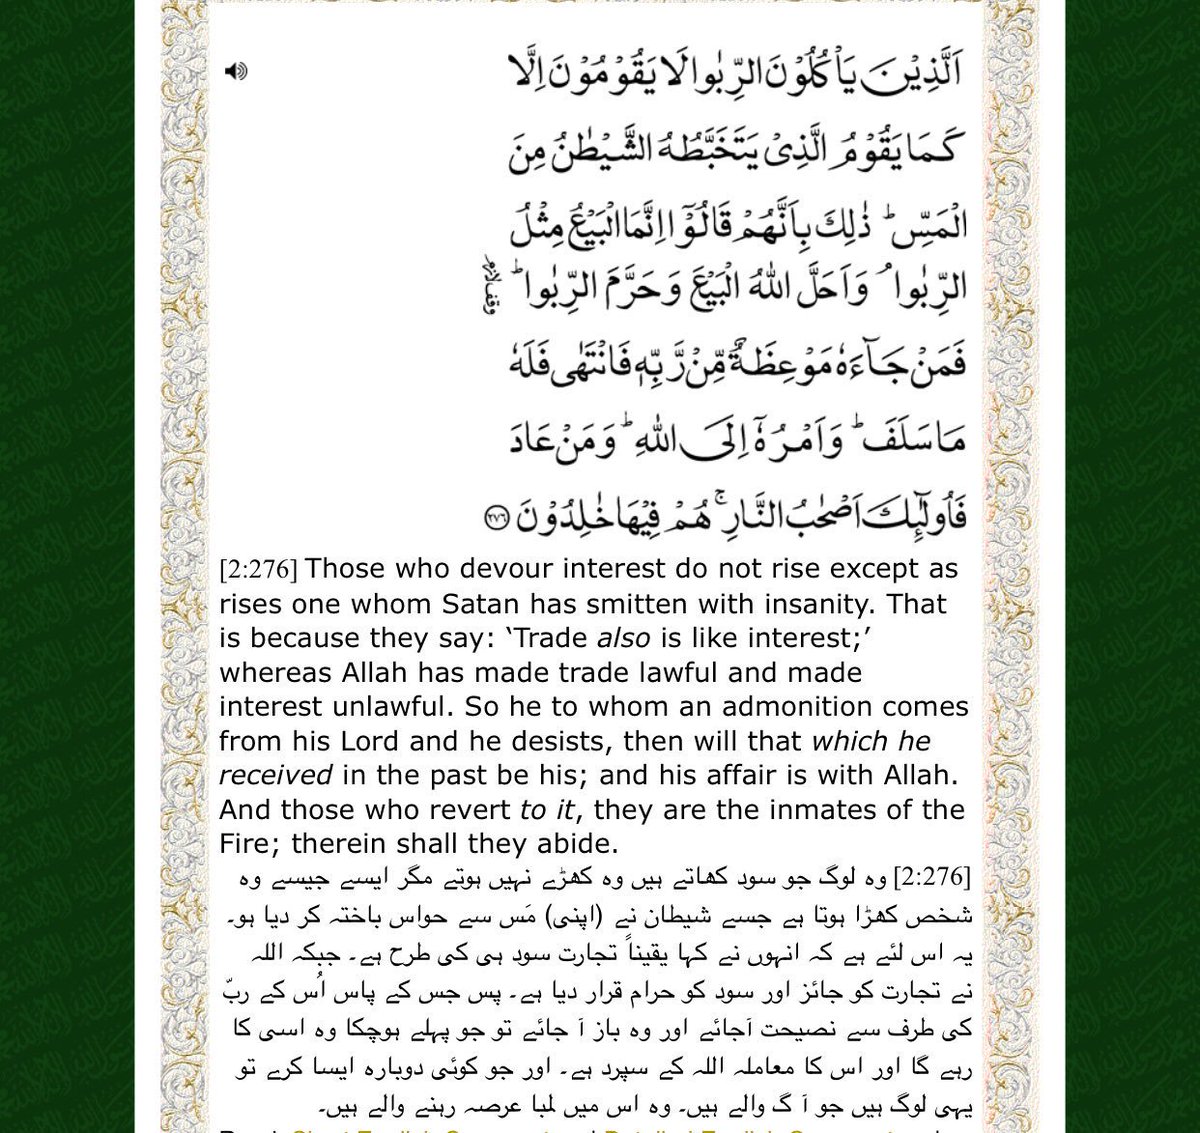 اَلَّذِيْنَ يَاْكُلُوْنَ الرِّبٰوا لَا يَقُوْمُوْنَ اِلَّا
كَمَا يَقُوْمُ الَّذِىْ يَتَخَبَّطُهُ الشَّيْطٰنُ مِنَ
الْمَسِّ ؕ ذٰلِكَ بِاَنَّهُمْ قَالُوْۤا اِنَّمَا الْبَيْعُ مِثْلُ
الرِّبٰوا ۘ وَاَحَلَّ اللّٰهُ الْبَيْعَ وَحَرَّمَ الرِّبٰوا ؕ وقف لازم
فَمَنْ جَآءَهٗ مَوْعِظَةٌ مِّنْ رَّبِّهٖ فَانْتَهٰى فَلَهٗ
مَا سَلَفَ ؕ وَاَمْرُهٗۤ اِلَى اللّٰهِ ؕ وَمَنْ عَادَ
فَاُولٰٓئِكَ اَصْحٰبُ النَّارِ ۚ هُمْ فِيْهَا خٰلِدُوْنَ ﴿۲۷۶﴾
[2:276] Those who devour interest do not rise except as
rises one whom Satan has smitten with insanity. That
is because they say: ‘Trade also is like interest;’
whereas Allah has made trade lawful and made
interest unlawful. So he to whom an admonition comes
from his Lord and he desists, then will that which he
received in the past be his; and his affair is with Allah.
And those who revert to it, they are the inmates of the
Fire; therein shall they abide.
[2:276] وہ لوگ جو سود کھاتے ہیں وہ کھڑے نہیں ہوتے مگر ایسے جیسے وہ
شخص کھڑا ہوتا ہے جسے شیطان نے (اپنی) مَس سے حواس باختہ کر دیا ہو۔
یہ اس لئے ہے کہ انہوں نے کہا یقیناً تجارت سود ہی کی طرح ہے۔ جبکہ اللہ
نے تجارت کو جائز اور سود کو حرام قرار دیا ہے۔ پس جس کے پاس اُس کے ربّ
کی طرف سے نصیحت آجائے اور وہ باز آ جائے تو جو پہلے ہوچکا وہ اسی کا
رہے گا اور اس کا معاملہ اللہ کے سپرد ہے۔ اور جو کوئی دوبارہ ایسا کرے تو
یہی لوگ ہیں جو آ گ والے ہیں۔ وہ اس میں لمبا عرصہ رہنے والے ہیں۔